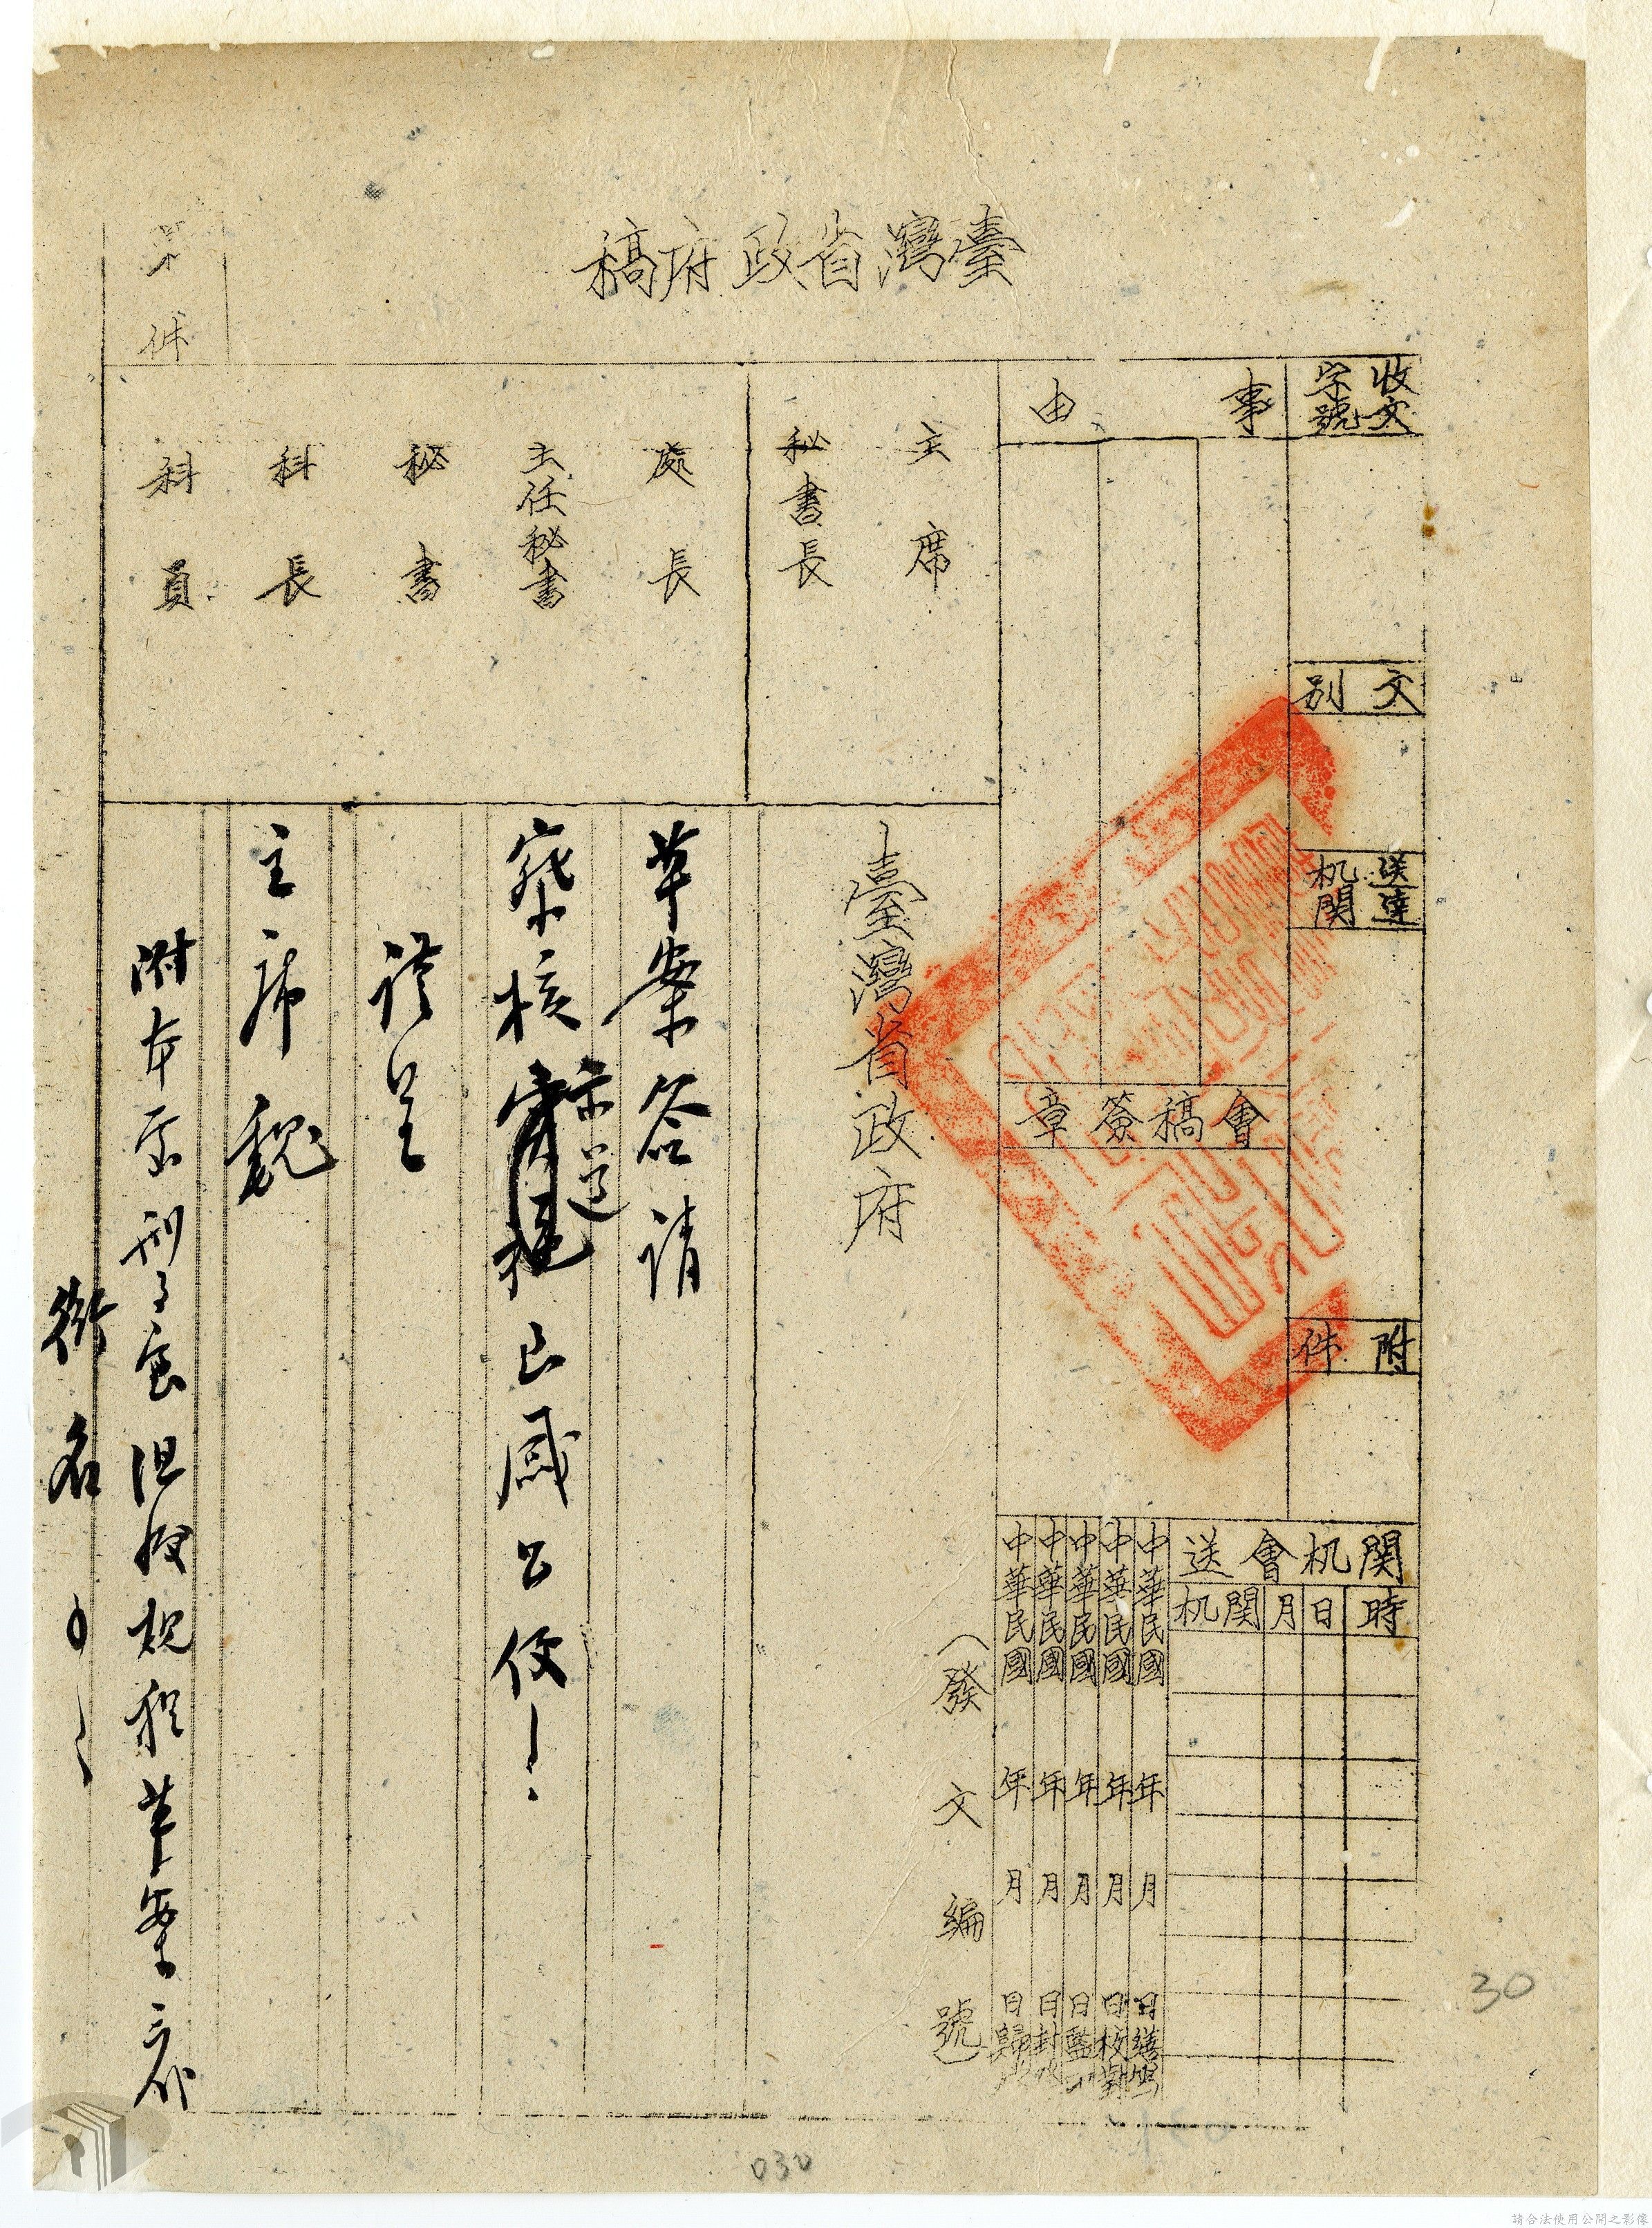 臺灣省政府稿
收文
字號
文別
送達
机関
附件
事由
會稿簽章
関机會送
時日月関机
中華民國 年 月 日繕寫
中華民國 年 月 日校對
中華民國 年 月 日監印
中華民國 年 月 日封發
中華民國 年 月 日歸
主席
秘書長
處長
主任秘書
秘書
科長
科員
件
(發文編號)
臺灣省政府
草案簽請
察核示遵 已感公便
謹呈
主席魏
附本
草案二份
銜名
30
030
請合法使用公開之影像